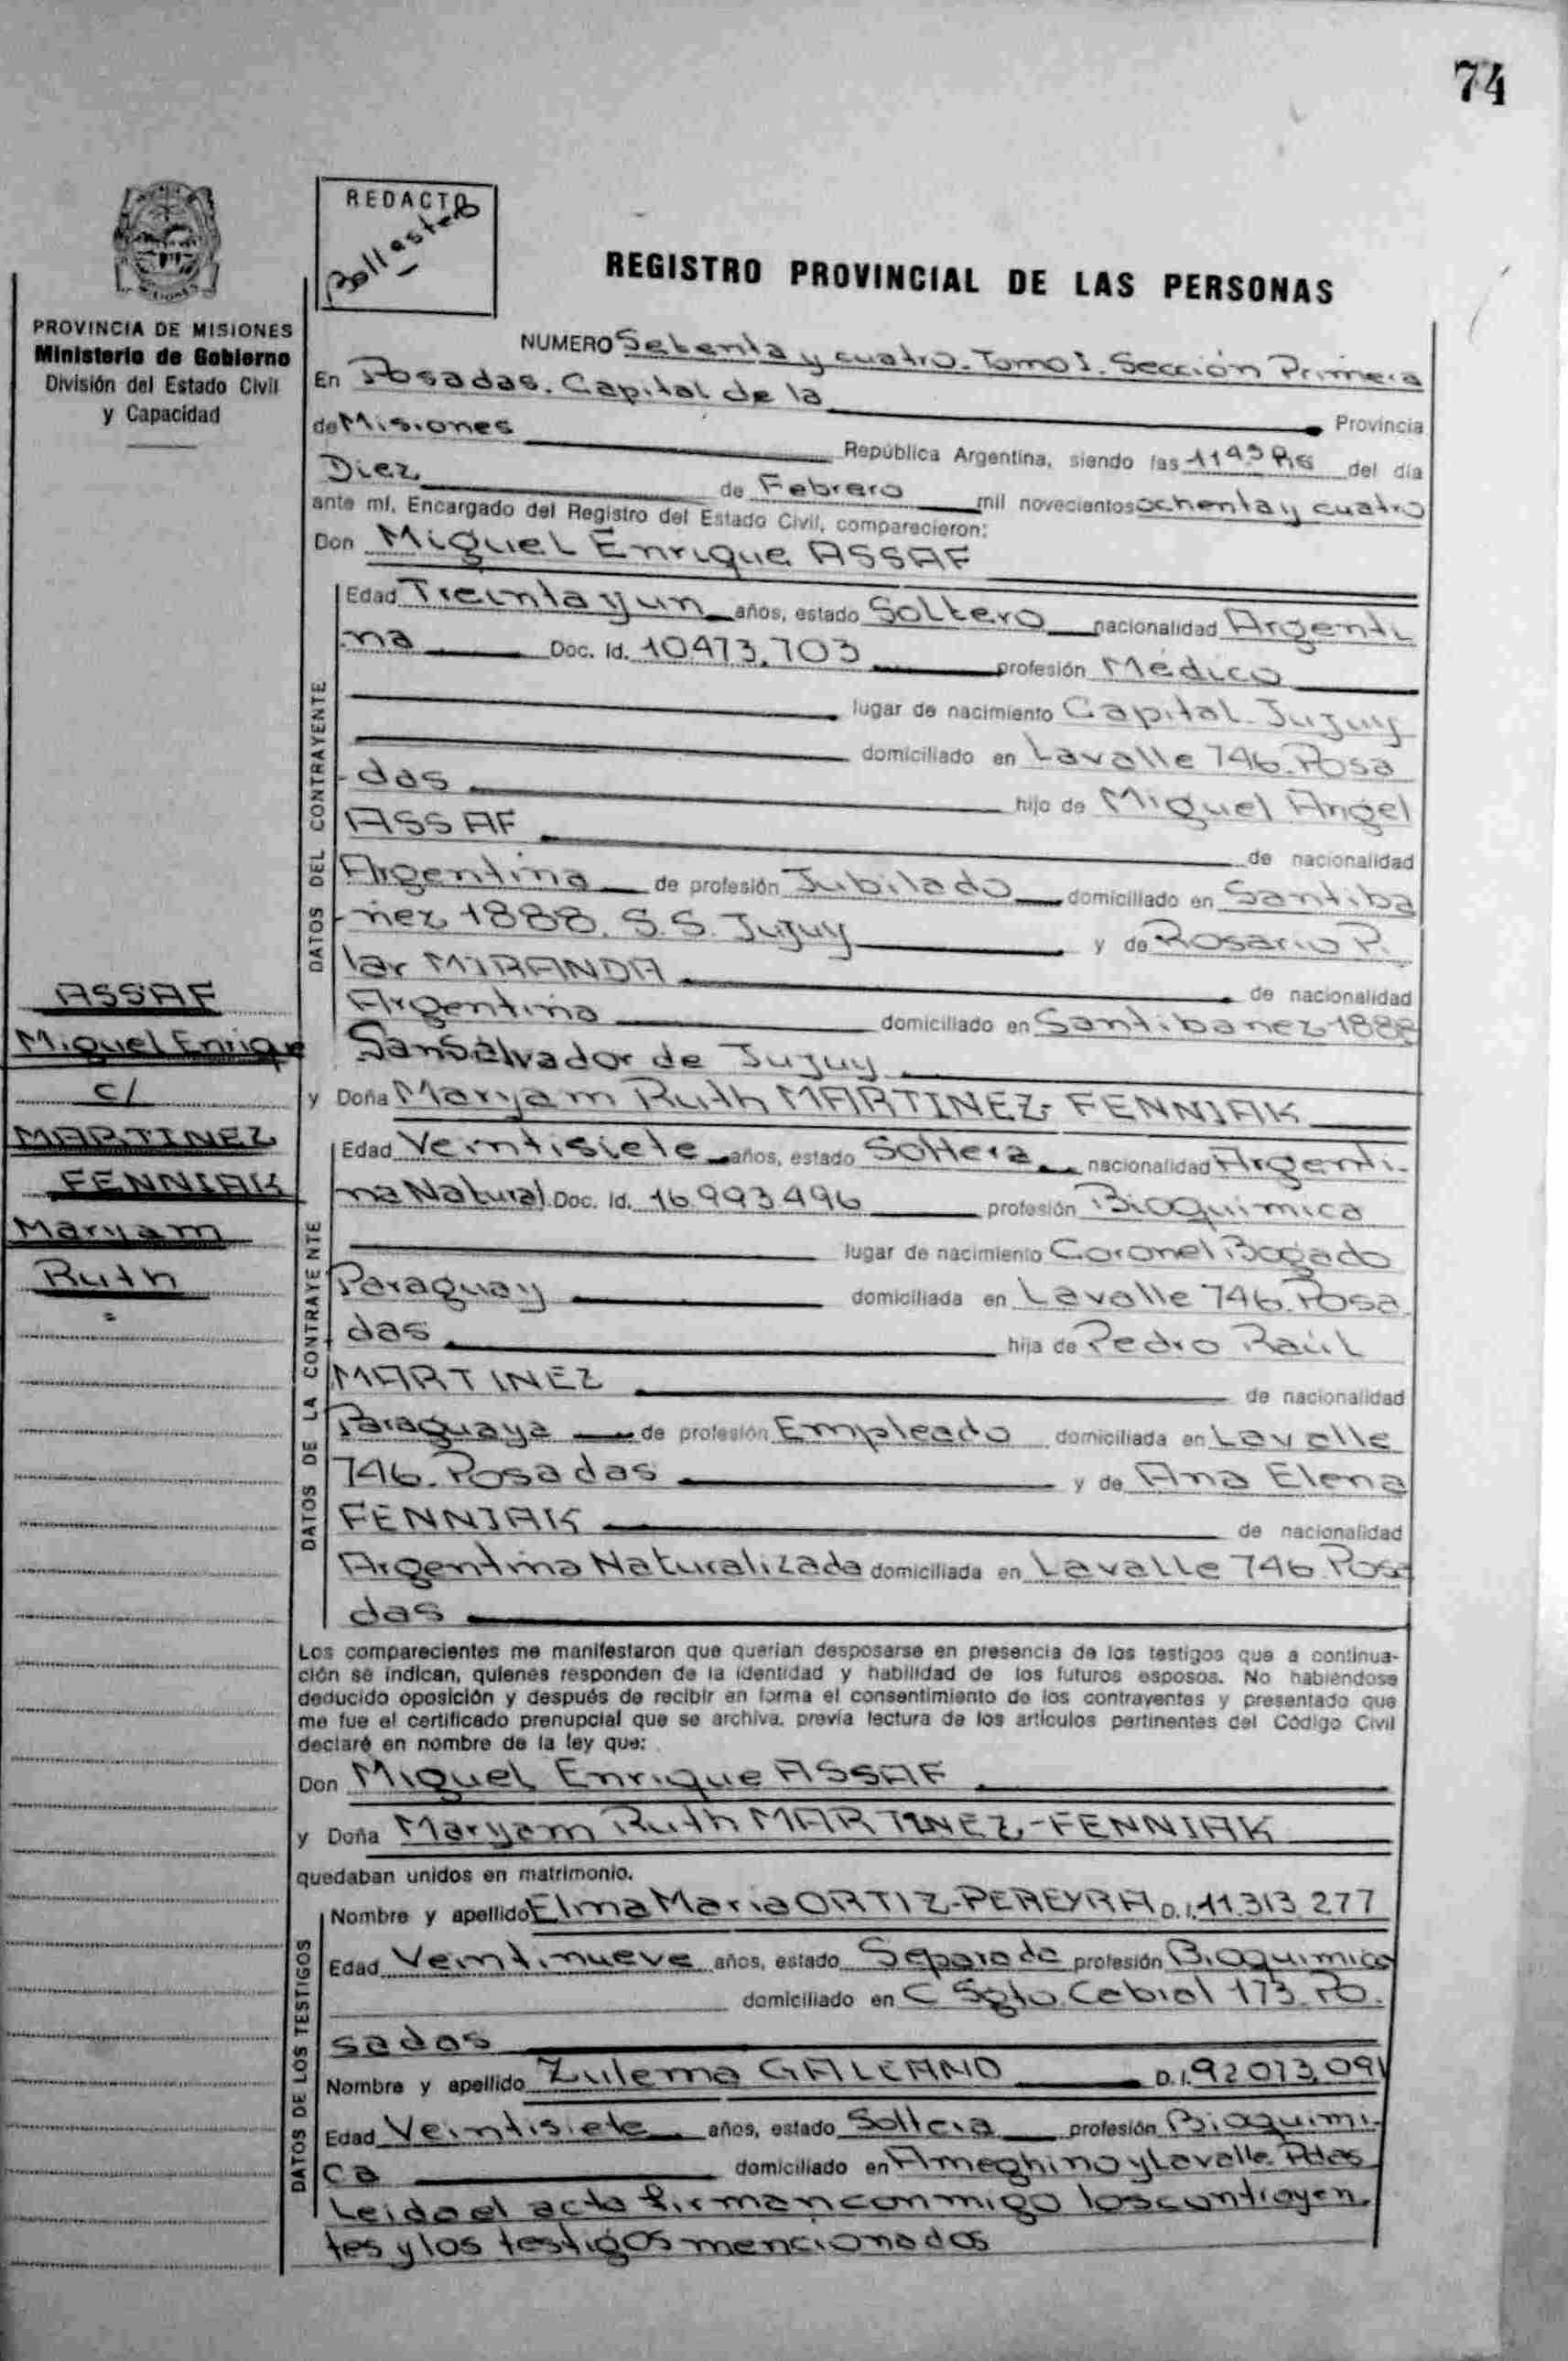 74
REDACTO
Ballestero
REGISTRO PROVINCIAL DE LAS PERSONAS
PROVINCIA DE MISIONES
Ministerio de Gobierno
División del Estado Civil
y Capacidad
NUMERO Setenta y cuatro. Tomo I. Sección Primera
En Posadas. Capital de la Provincia
de Misiones República Argentina, siendo las del día
Diez de Febrero mil novecientos ochenta y cuatro
ante mí, Encargado del Registro del Estado Civil, comparecieron:
Don Miguel Enrique ASSAF
DATOS DEL CONTRAYENTE
Edad Treinta y un años, estado Soltero nacionalidad Argenti
na Doc. Id. 10473.703 profesión Médico
lugar de nacimiento Capital. Jujuy
domiciliado en Lavalle 746. Posa
das hijo de Miguel Angel
ASSAF de nacionalidad
Argentina de profesión Jubilado domiciliado en Santiba
ñez 1888. S.S. Jujuy y de Rosario Pi
lar MIRANDA de nacionalidad
Argentina domiciliado en Santibanez 1888
San Salvador de Jujuy
ASSAF
Miguel Enrique
c/
MARTINEZ
FENNIAK
Maryam
Ruth
y Doña Maryam Ruth MARTINEZ- FENNIAK
DATOS DE LA CONTRAYENTE
Edad Veintisiete años, estado Soltera nacionalidad Argenti-
na Natural. Doc. Id. 16.993.496 profesión Bioquimica
lugar de nacimiento Coronel Bogado
Paraguay domiciliada en Lavalle 746. Posa
das hija de Pedro Raúl
MARTINEZ de nacionalidad
Paraguaya de profesión Empleado domiciliada en Lavalle
746. Posadas y de Ana Elena
FENNIAK de nacionalidad
Argentina Naturalizada domiciliada en Lavalle 746 Posa
das
Los comparecientes me manifestaron que querían desposarse en presencia de los testigos que a continua-
ción se indican, quienes responden de la identidad y habilidad de los futuros esposos. No habiéndose
deducido oposición y después de recibir en forma el consentimiento de los contrayentes y presentado que
me fue el certificado prenupcial que se archiva, previa lectura de los artículos pertinentes del Código Civil
declaré en nombre de la ley que:
Don Miguel Enrique ASSAF
y Doña Maryam Ruth MARTINEZ-FENNIAK
quedaban unidos en matrimonio.
DATOS DE LOS TESTIGOS
Nombre y apellido Elma Maria ORTIZ-PEREYRA D.I. 11.313.277
Edad Veintinueve años, estado Separada profesión Bioquimica
domiciliado en C Sgto. Cabral 173. Po.
sadas
Nombre y apellido Zulema GALEANO D.I. 92 013.091
Edad Veintisiete años, estado Soltera profesión Bioquimi-
ca domiciliado en Ameghino y Lavalle. Pdas
Leida el acta firman conmigo los contrayen
tes y los testigos mencionados